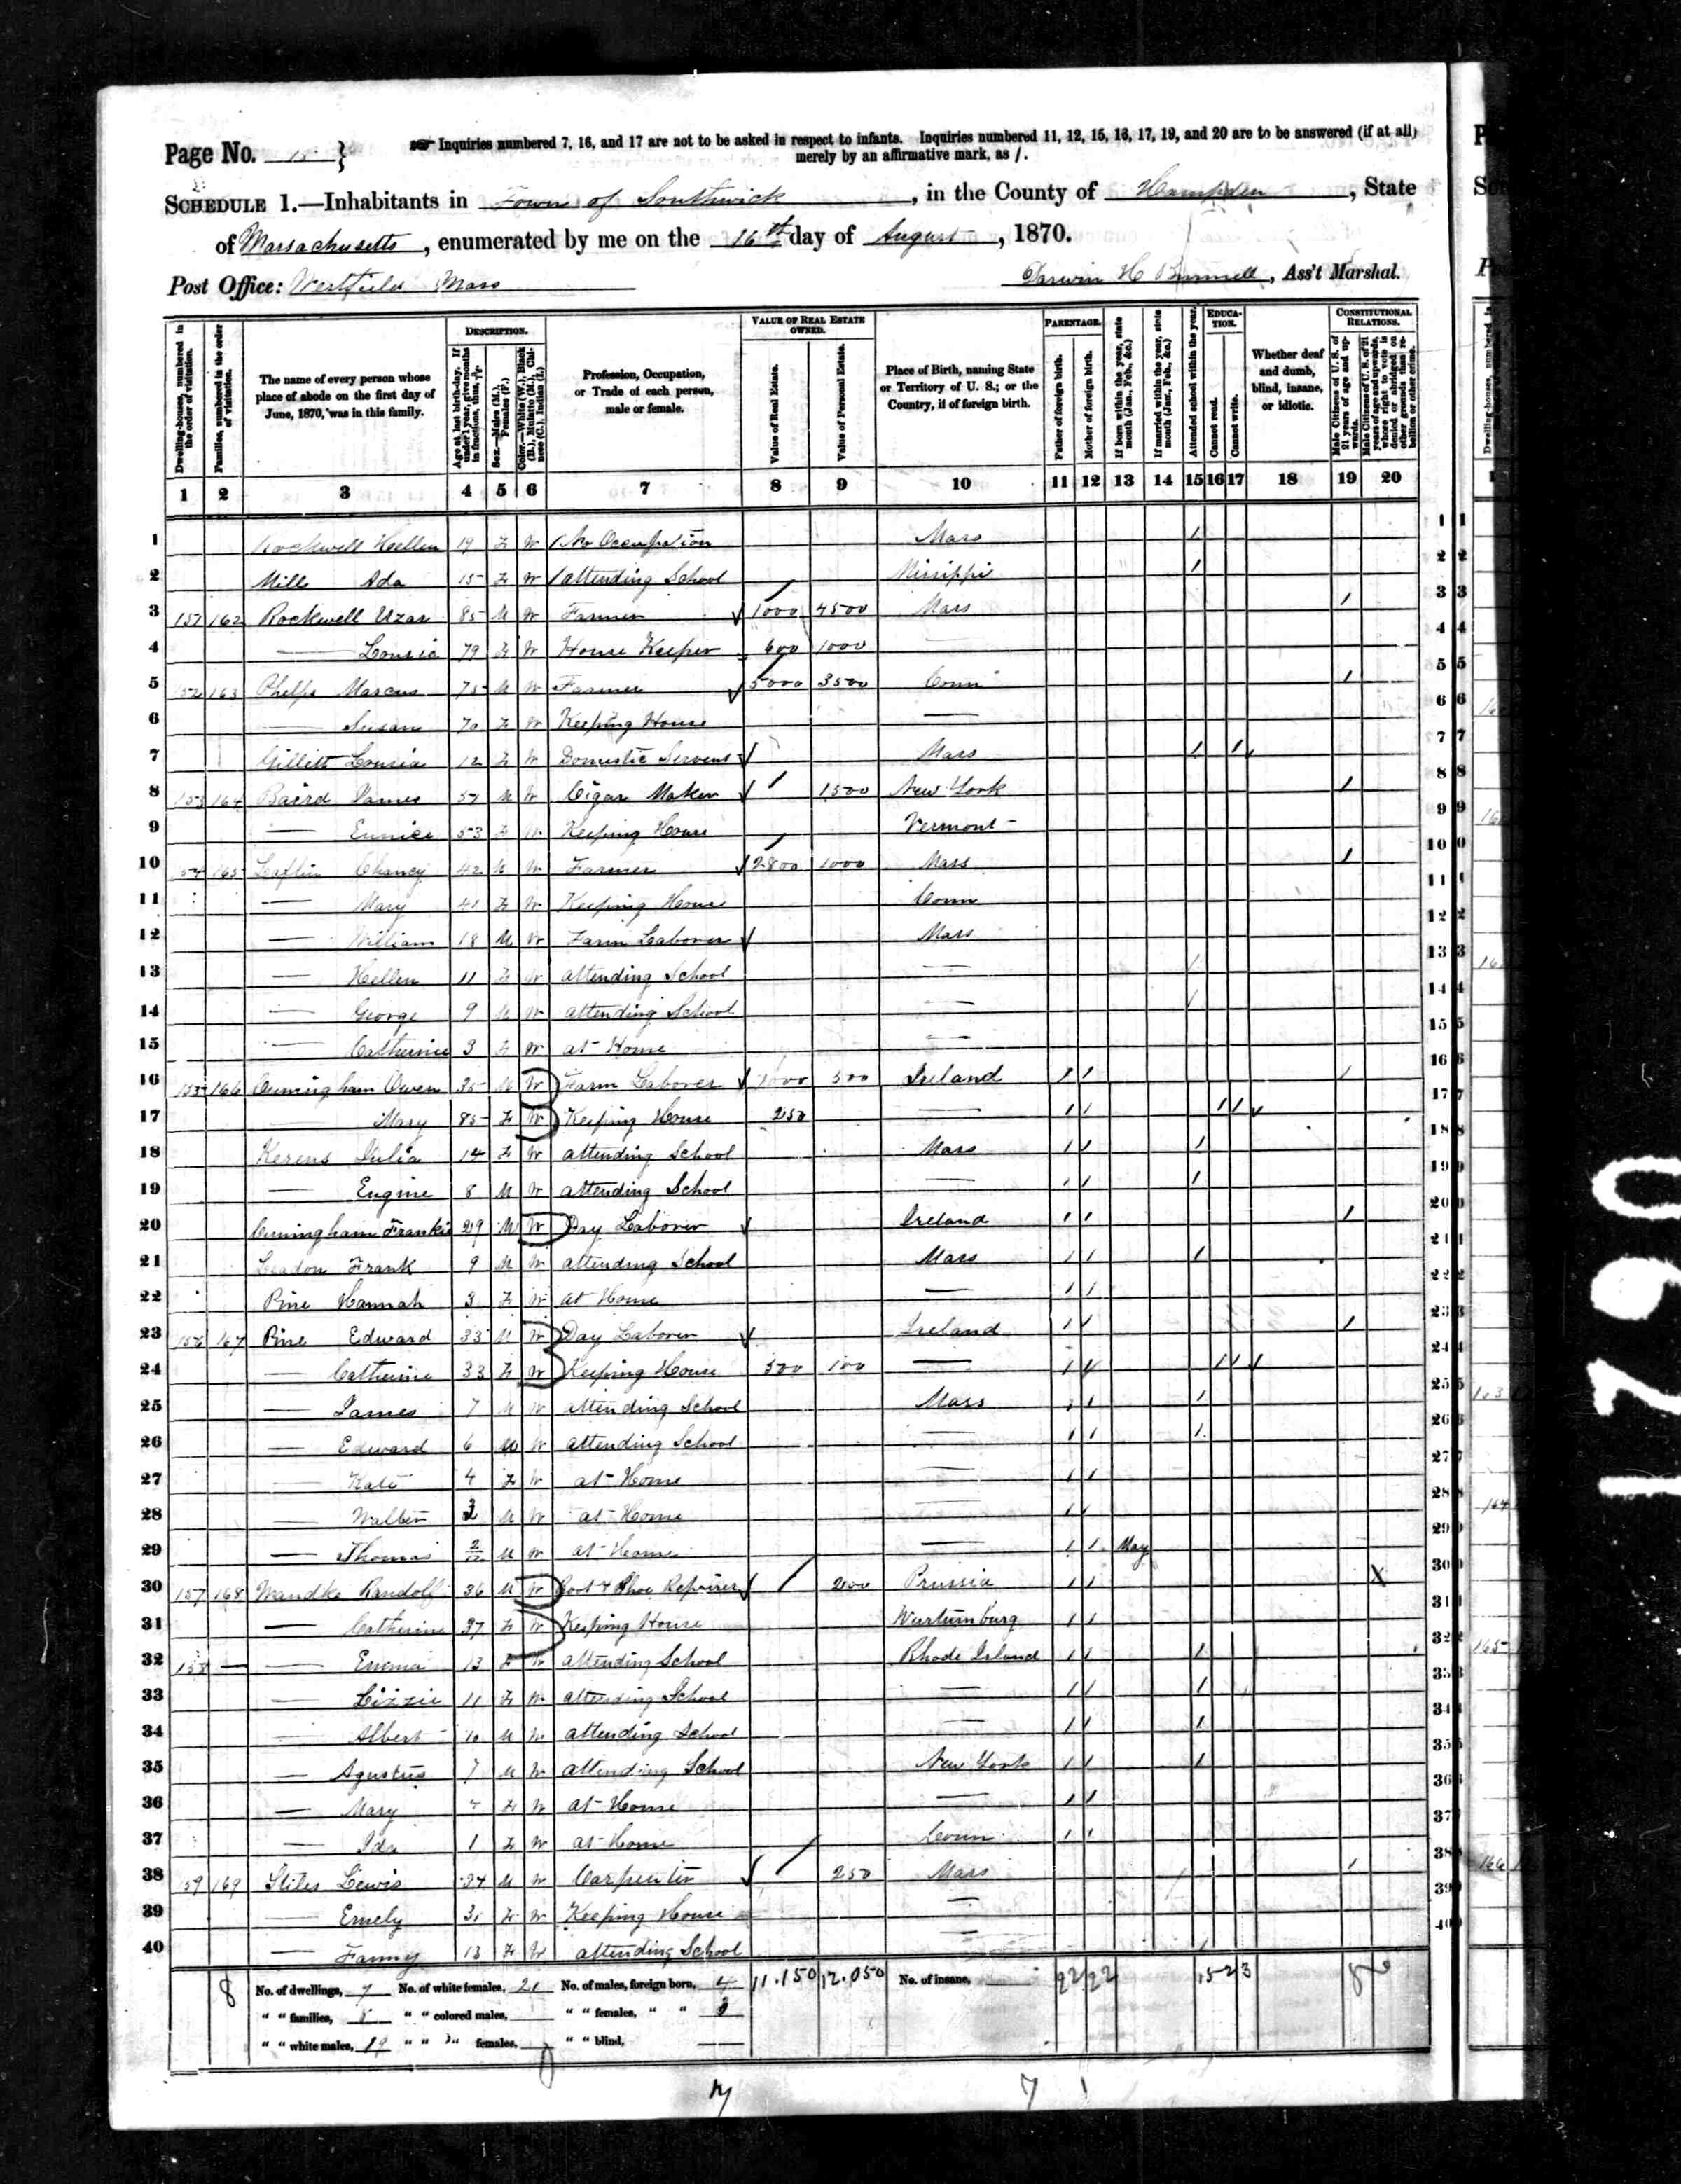 Page No. 15 } Inquiries numbered 7, 16, and 17 are not to be asked in respect to infants. Inquiries numbered 11, 12, 15, 16, 17, 19, and 20 are to be answered (if at all)
merely by an affirmative mark, as /.
SCHEDULE 1.—Inhabitants in Town of Southwick, in the County of Hampden, State
of Massachusetts, enumerated by me on the 16th day of August, 1870.
Post Office: Westfield Mass
Darwin H, Ass't Marshal.
Dwelling-houses, numbered in the order of visitation.
Families, numbered in the order of visitation.
The name of every person whose place of abode on the first day of June, 1870, was in this family.
DESCRIPTION.
Age at last birth-day. If under 1 year, give months in fractions, thus, 3/12.
Sex.—Males (M.), Females (F.)
Color.—White (W.), Black (B.), Mulatto (M.), Chinese (C.), Indian (I.)
Profession, Occupation, or Trade of each person, male or female.
VALUE OF REAL ESTATE OWNED.
Value of Real Estate.
Value of Personal Estate.
Place of Birth, naming State or Territory of U. S.; or the Country, if of foreign birth.
PARENTAGE.
Father of foreign birth.
Mother of foreign birth.
If born within the year, state month (Jan., Feb., &c.)
If married within the year, state month (Jan., Feb., &c.)
Attended school within the year.
EDUCATION.
Cannot read.
Cannot write.
Whether deaf and dumb, blind, insane, or idiotic.
CONSTITUTIONAL RELATIONS.
Male Citizens of U. S. of 21 years of age and upwards.
Male Citizens of U. S. of 21 years of age and upwards, whose right to vote is denied or abridged on other grounds than rebellion or other crime.
1 2 3 4 5 6 7 8 9 10 11 12 13 14 15 16 17 18 19 20
1 Rockwell Hellen 19 F W No Occupation Mass / 1
2 Mills Ada 15 F W attending School Missippi / 2
3 151 162 Rockwell Uzar 85 M W Farmer 1000 4500 Mass / 3
4 — Lousia 79 F W House Keeper 600 1000 4
5 152 163 Phelps Marcus 75 M W Farmer 5000 3500 Conn / 5
6 — Susan 70 F W Keeping House — 6
7 Gillett Lousia 12 F W Domestic Servent Mass / / 7
8 153 164 Baird James 57 M W Cigar Maker 1500 New York / 8
9 — Eunice 53 F W Keeping House Vermont 9
10 154 165 Laflin Chancy 42 M W Farmer 2800 1000 Mass / 10
11 — Mary 41 F W Keeping House Conn 11
12 — William 18 M W Farm Laborer Mass 12
13 — Hellen 11 F W attending School — / 13
14 — George 9 M W attending School — / 14
15 — Catherine 3 F W at Home — 15
16 155 166 Cuningham Owen 35 M W Farm Laborer 1000 500 Ireland / / / 16
17 — Mary 85 F W Keeping House 250 — / / / / 17
18 Kerens Julia 14 F W attending School Mass / / / 18
19 — Eugine 8 M W attending School — / / / 19
20 Cuningham Frankie 29 M W Day Laborer Ireland / / / 20
21 Leadon Frank 9 M W attending School Mass / / / 21
22 Pine Hannah 3 F W at Home — / / 22
23 156 167 Pine Edward 33 M W Day Laborer Ireland / / / 23
24 — Catherine 33 F W Keeping House 500 100 — / / / / 24
25 — James 7 M W attending School Mass / / / 25
26 — Edward 6 M W attending School — / / / 26
27 — Kate 4 F W at Home — / / 27
28 — Walter M W at Home — / / 28
29 — Thomas 2/12 M W at Home — / / May 29
30 157 168 Wandke Randolf 36 M W Boot & Shoe Repairer 200 Prussia / / X 30
31 — Catherine 37 F W Keeping House Wurtumburg / / 31
32 158 — — Emma 13 F W attending School Rhode Island / / / 32
33 — Lizzie 11 F W attending School — / / / 33
34 — Albert 10 M W attending School — / / / 34
35 — Agustus 7 M W attending School New York / / / 35
36 — Mary 4 F W at Home — / / 36
37 — Ida 1 F W at Home Conn / / 37
38 159 169 Stiles Lewis 34 M W Carpenter 250 Mass / 38
39 — Emely 31 F W Keeping House — 39
40 — Fanny 13 F W attending School — / 40
8 No. of dwellings, 7 No. of white females, 21 No. of males, foreign born, 4 11.150 12.050 No. of insane, 22 22 15 2 3 8
" " families, 8 " " colored males, " " females, " " 3
" " white males, 19 " " " females, " " blind,
7 /
1790